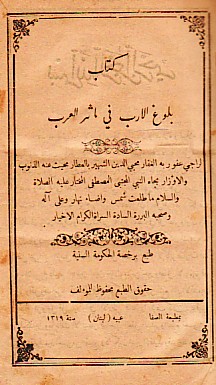 كتاب
بلوغ الارب في مآثر العرب
لراجي عفو ربه الغفار محيي الدين الشهير بالعطار محيت عنه الذنوب
والاوزار بجاه النبي المجتبى المصطفى المختار عليه الصلاة
والسلام ما طلعت شمس واضاء نهار وعلى آله
وصحبه البررة السادة السراة الكرام الاخيار
طبع برخصة الحكومة السنية
حقوق الطبع محفوظة للمؤلف
بمطبعة الصفا عبيه (لبنان) سنة ١٣١٩